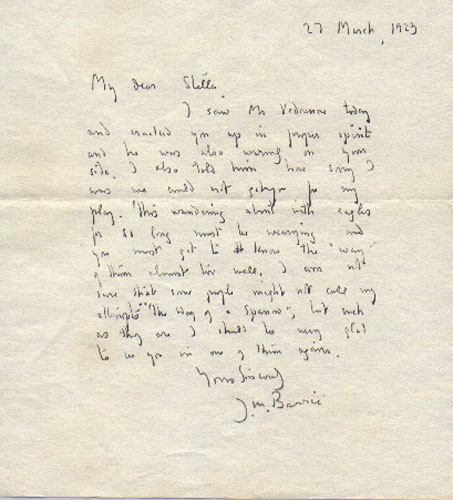 27 March, 1923
My dear Stella
I saw Mr Vedrenne today
and cracked you up in proper spirit
and he was also warmly on your
side. I also told him how sorry I
was we could not get you for my
play. This wandering about with eagles
for so long must be wearying and
you must get to know the "way"
of them almost too well. I am not
sure that some people might not call my
attempts "The Way of a Sparrow", but such
as they are I shall be very glad
to see you in one of them again.
Yours Sincerely
J. M. Barrie